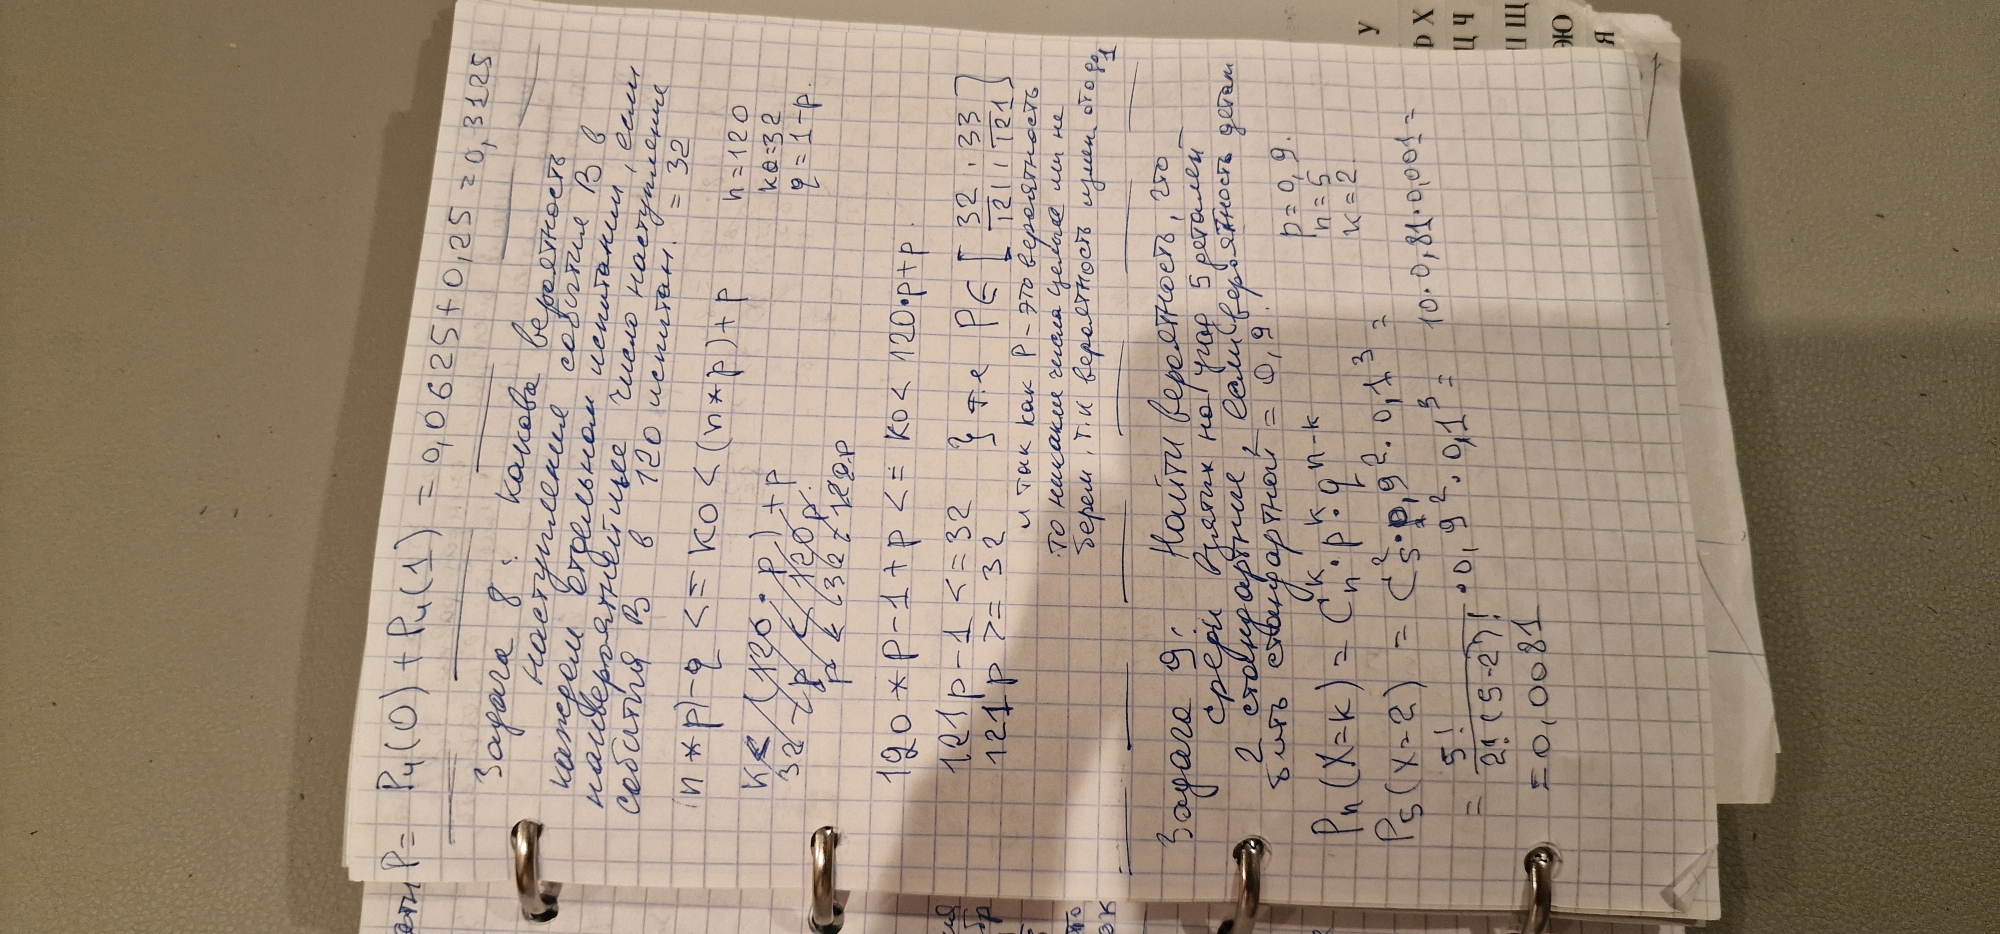 P = P₄(0) + P₄(1) = 0,0625 + 0,25 = 0,3125
Задача 8: Какова вероятность
наступления события B в
каждом отдельном испытании, если
наивероятнейшее число наступление
события B в 120 испытан. = 32
(n * p) - q <= k0 < (n * p) + p
n = 120
k0 = 32
q = 1 - p.
k < (120 · p) + p
32 - p < 120p
120 * p - 1 + p <= k0 < 120 · p + p.
121p - 1 <= 32
121p >= 32
} т.е P ∈ [32/121 ; 33/121]
и так как P - это вероятность
то никакие числа целые мы не
берем, т.к вероятность измен. от 0 до 1
Задача 9: Найти вероятность, что
среди взятых на угад 5 деталей
2 стандартные, если вероятность детали
быть стандартной = 0,9.
p = 0,9.
n = 5
k = 2.
Pₙ(X=k) = Cₙᵏ · pᵏ · qⁿ⁻ᵏ
P₅(X=2) = C₅² · 0,9² · 0,1³ =
= 5!/2!(5-2)! · 0,9² · 0,1³ = 10 · 0,81 · 0,001 =
= 0,0081
У
Р Х
Ц Ч
Щ
ЭЮ
Я